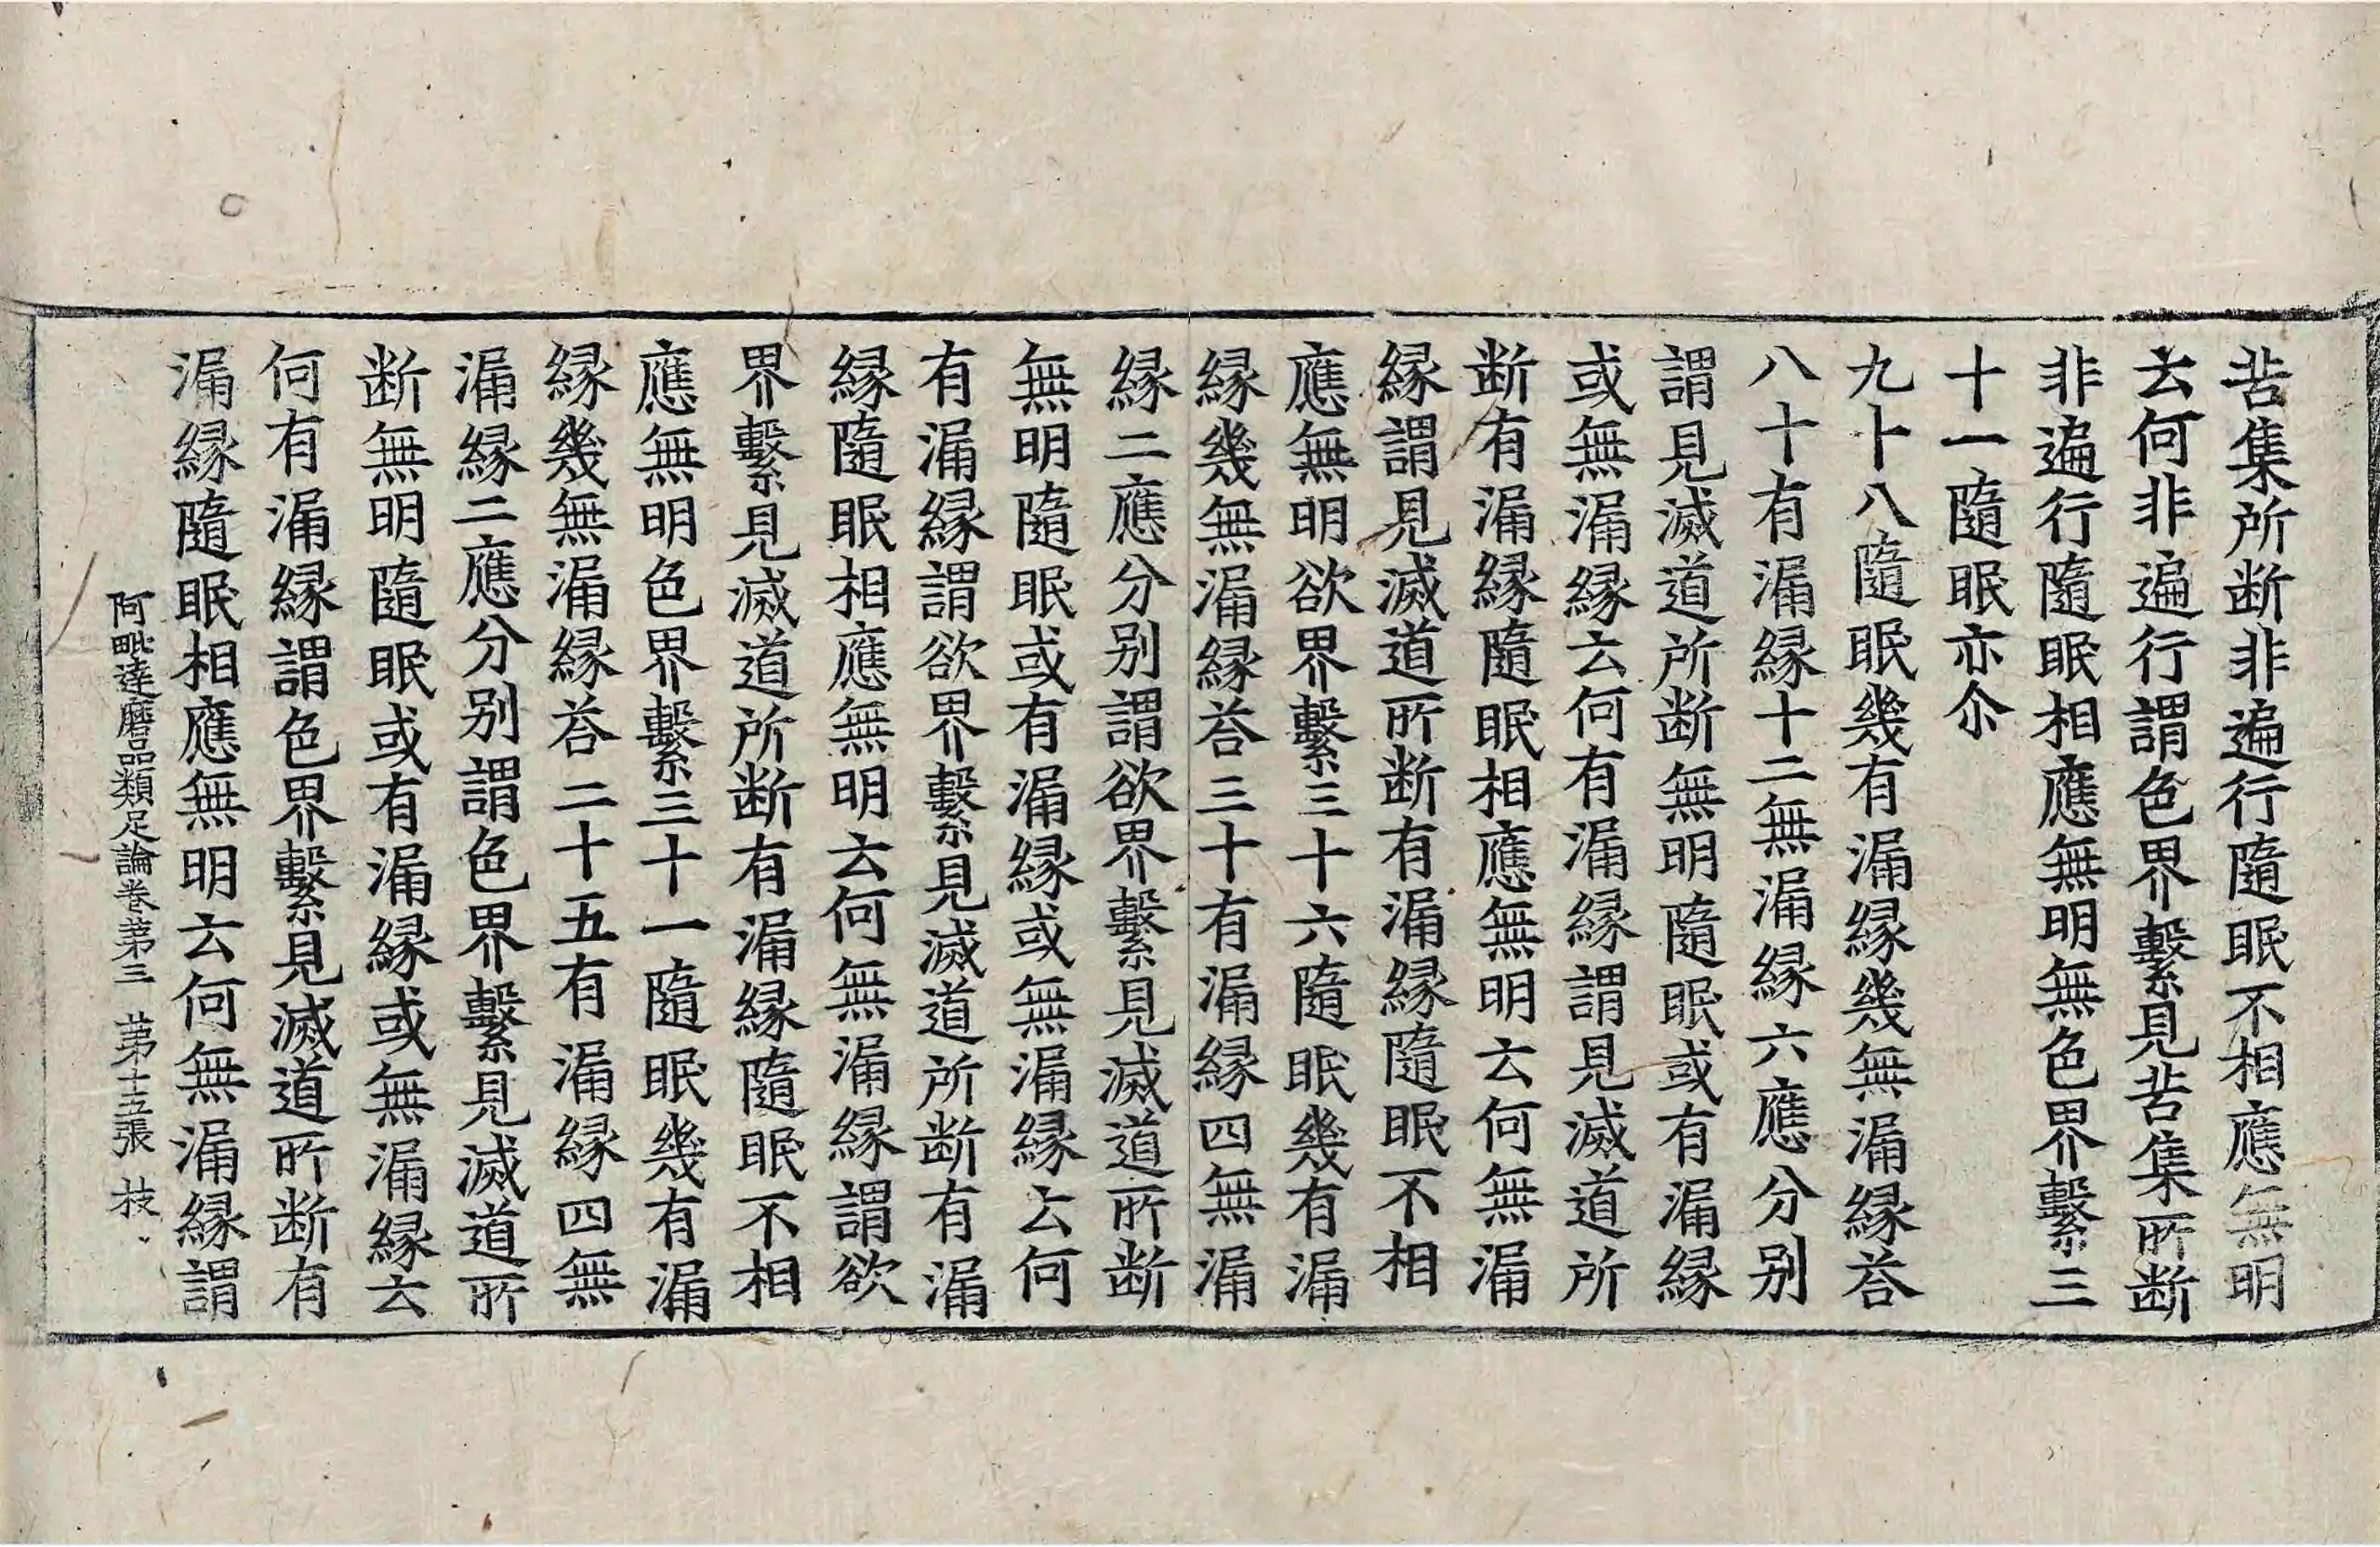 苦集所断非遍行隨眠不相應無明
云何非遍行謂色界繫見苦集所断
非遍行隨眠相應無明無色界繫三
十一隨眠亦尒
九十八隨眠幾有漏緣幾無漏緣荅
八十有漏緣十二無漏緣六應分別
謂見滅道所断無明隨眠或有漏緣
或無漏緣云何有漏緣謂見滅道所
断有漏緣隨眠相應無明云何無漏
緣謂見滅道所断有漏緣隨眠不相
應無明欲界繫三十六隨眠幾有漏
緣幾無漏緣荅三十有漏緣四無漏
緣二應分別謂欲界繫見滅道所断
無明隨眠或有漏緣或無漏緣云何
有漏緣謂欲界繫見滅道所断有漏
緣隨眠相應無明云何無漏緣謂欲
界繫見滅道所断有漏緣隨眠不相
應無明色界繫三十一隨眠幾有漏
緣幾無漏緣荅二十五有漏緣四無
漏緣二應分別謂色界繫見滅道所
断無明隨眠或有漏緣或無漏緣云
何有漏緣謂色界繫見滅道所断有
漏緣隨眠相應無明云何無漏緣謂
阿毗達磨品類足論卷第三 第十五張 枝